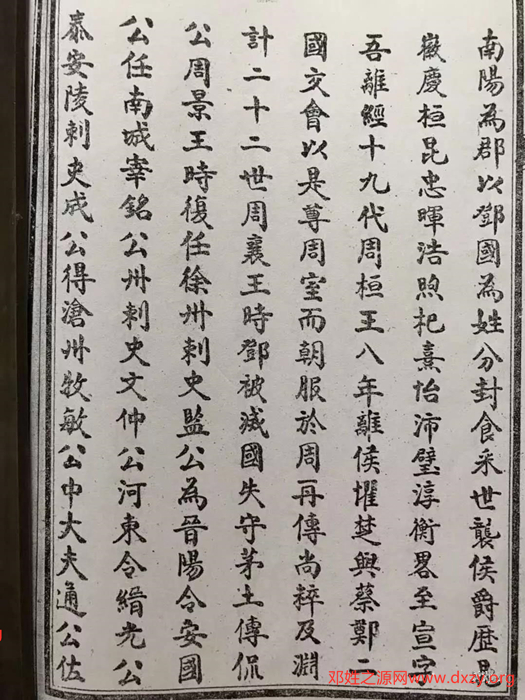 南陽為郡以鄧國為姓分封食采世襲侯爵歴昆
徽慶桓昆忠暉浩煦杞熹怡沛璧淳衡畧至宣字
吾離經十九代周桓王八年離侯懼楚與蔡鄭二
國交會以是尊周室而朝服於周再傳尚粹及淵
計二十二世周襄王時鄧被滅國失守茅土傳侃
公周景王時復任徐州刺史監公為晉陽令安國
公任南城宰銘公州刺史文仲公河東令縉光公
泰安陵刺史成公得滄州牧敏公中大夫通公佐
邓姓之源网www.dxzy.org